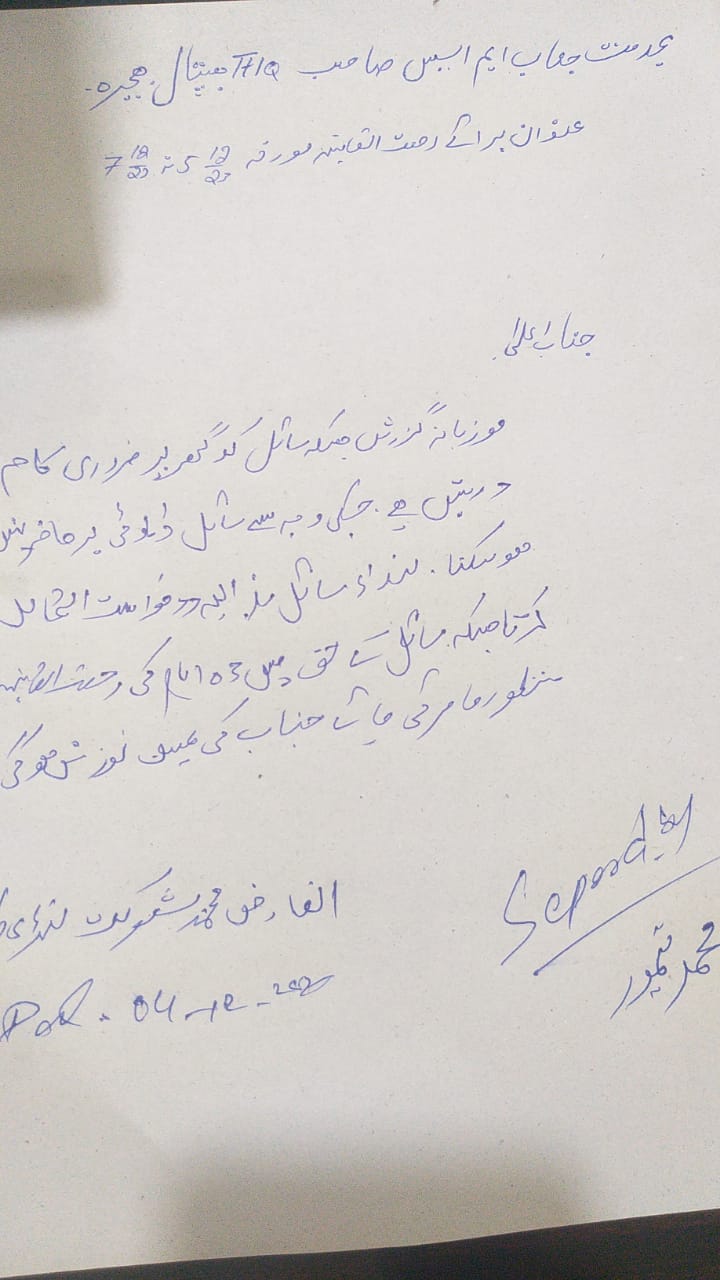 بخدمت جناب ایم ایس صاحب THQ ہسپتال ہجیرہ۔
عنوان برائے رخصت اتفاقیہ مورخہ 5 12/23 تا 7 12/23
جناب اعلیٰ
موزبانہ گزرش ہیکہ سائل کو گھر پر ضروری کام
درپیش ہے۔ جسکی وجہ سے سائل ڈیوٹی پر حاضر نہیں
ہوسکتا۔ لہذاء سائل بذریعہ درخواست
کرتا ہیکہ سائل کے حق میں 03 ایام کی رخصت اتفاقیہ
منظور فامرئی جائے جناب کی عین نوزش ہوگی
العارض محمد شوکت
04-12-202
محمد تیمور